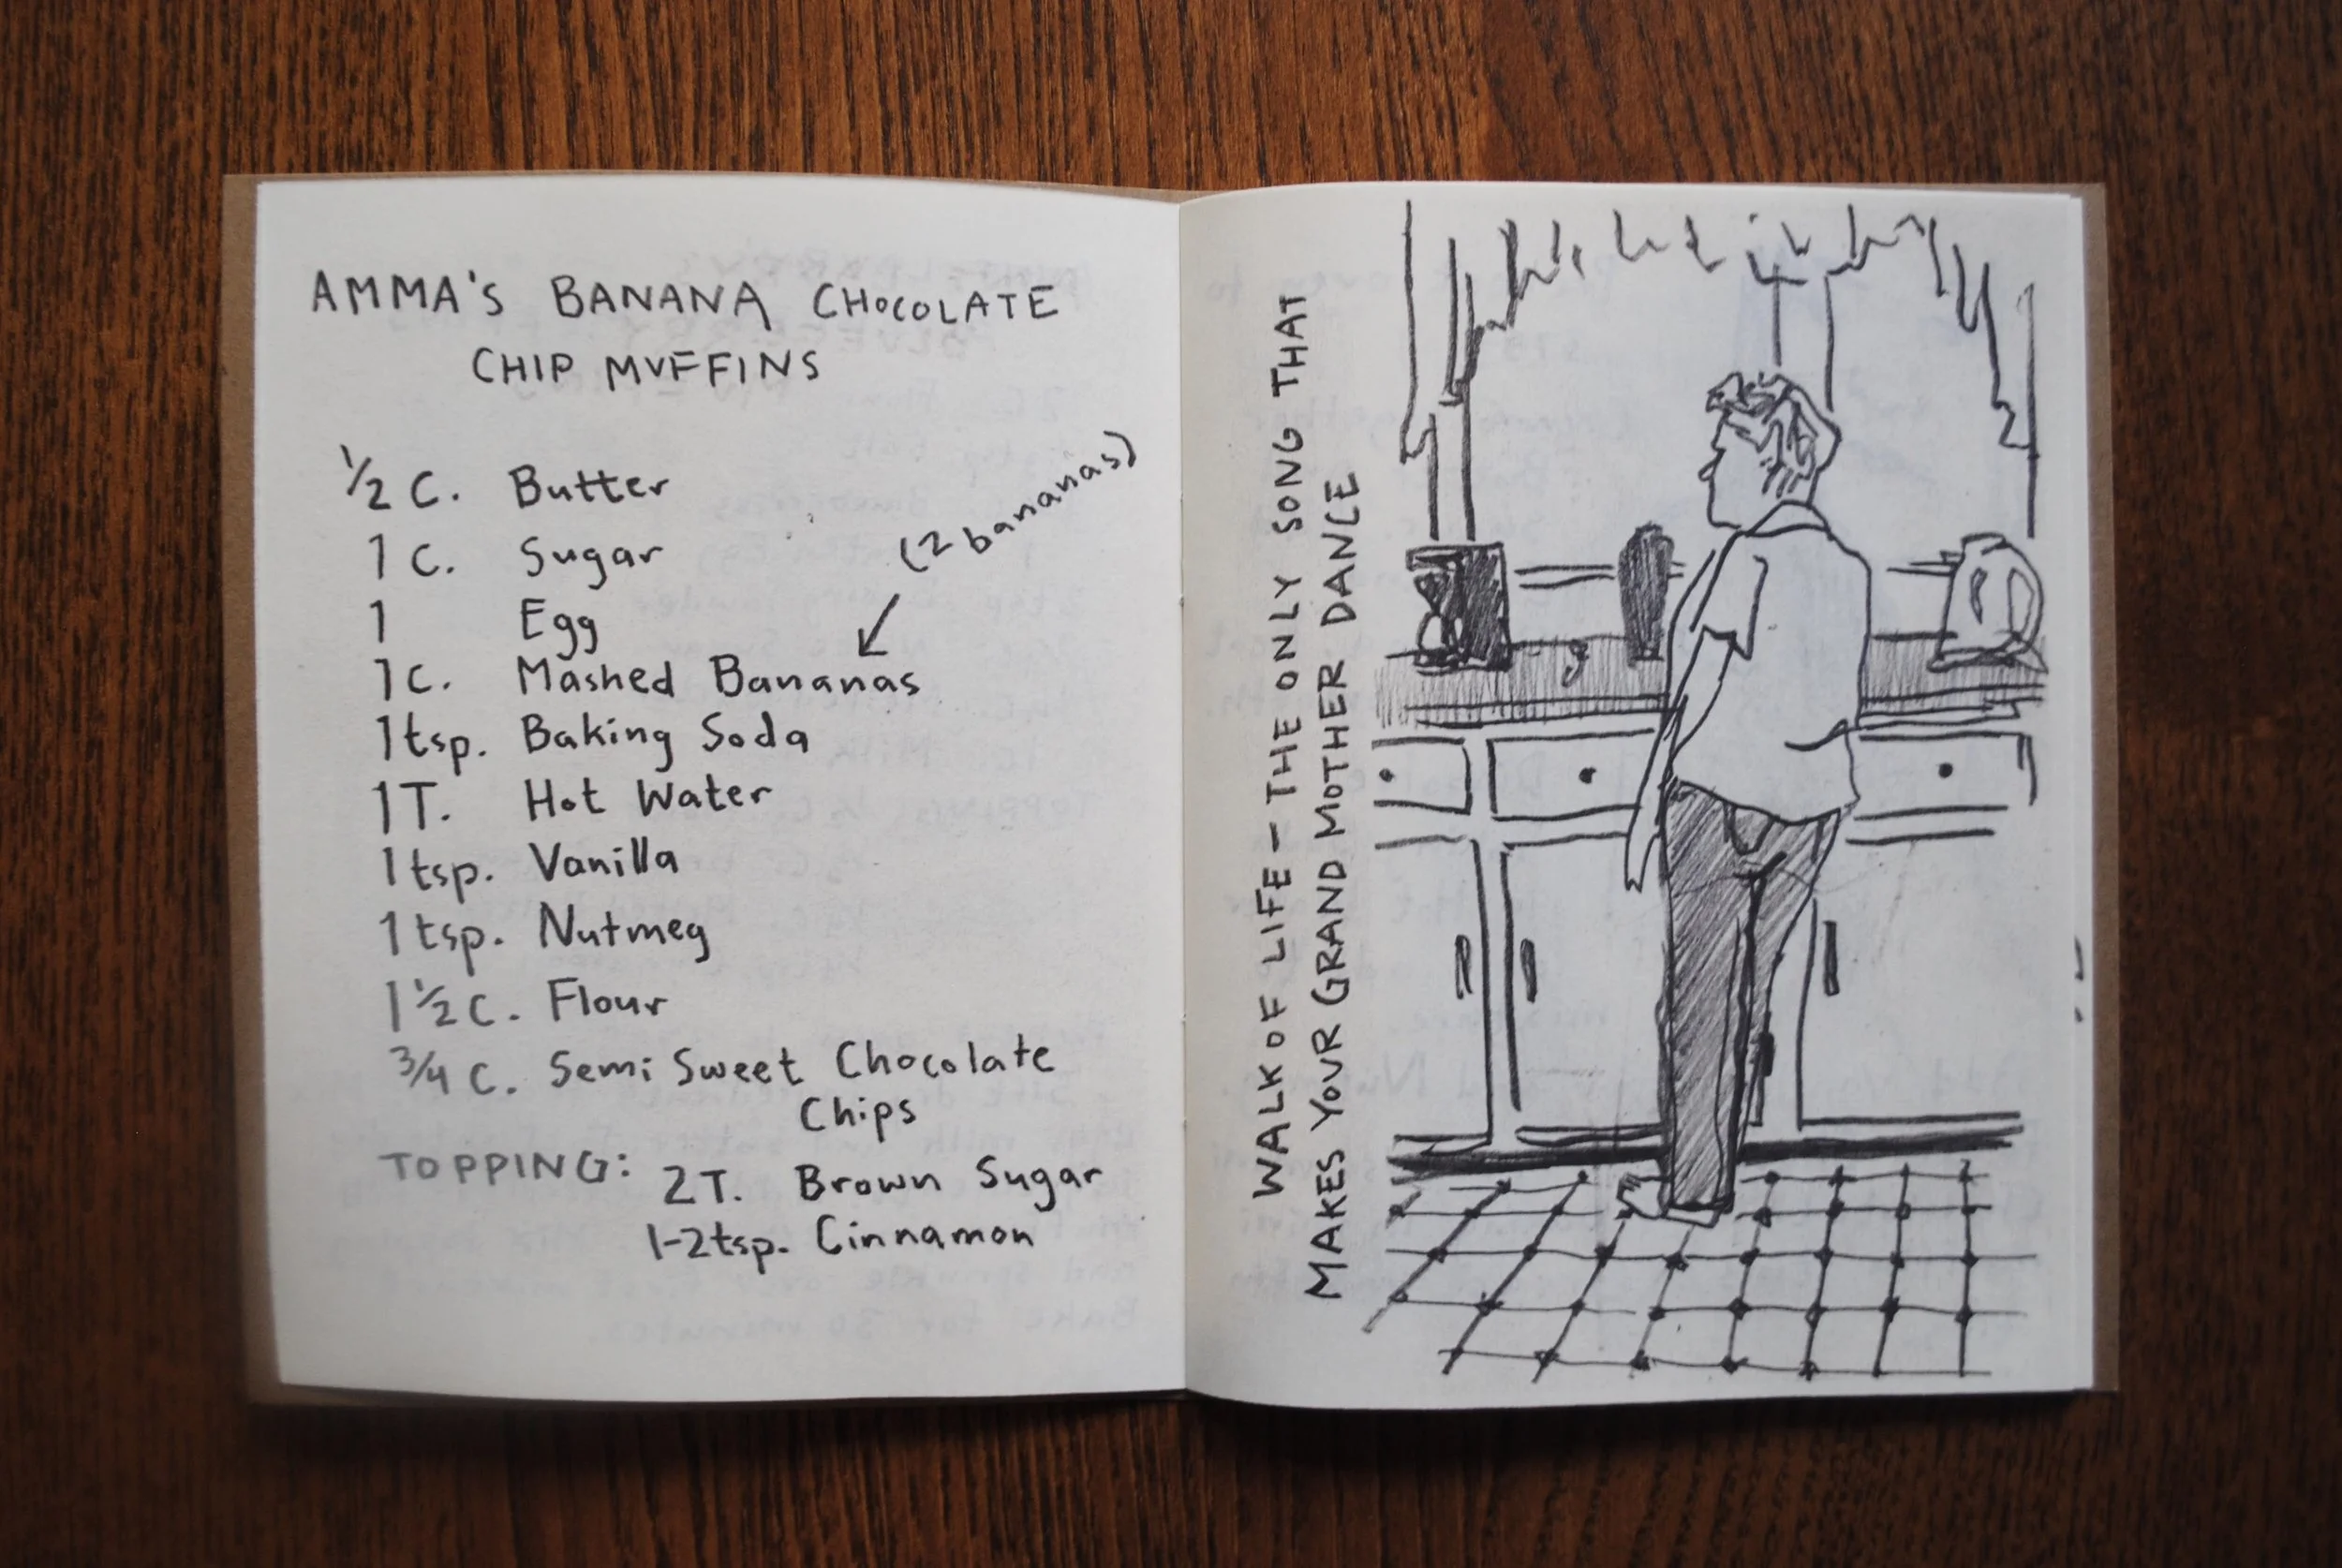 AMMA'S BANANA CHOCOLATE
CHIP MUFFINS
(2 bananas)
1/2 C. Butter
1 C. Sugar
1 Egg
1 C. Mashed Bananas
1 tsp. Baking Soda
1 T. Hot Water
1 tsp. Vanilla
1 tsp. Nutmeg
1 1/2 C. Flour
3/4 C. Semi Sweet Chocolate
Chips
TOPPING: 2 T. Brown Sugar
1-2 tsp. Cinnamon
WALK OF LIFE - THE ONLY SONG THAT
MAKES YOUR GRAND MOTHER DANCE